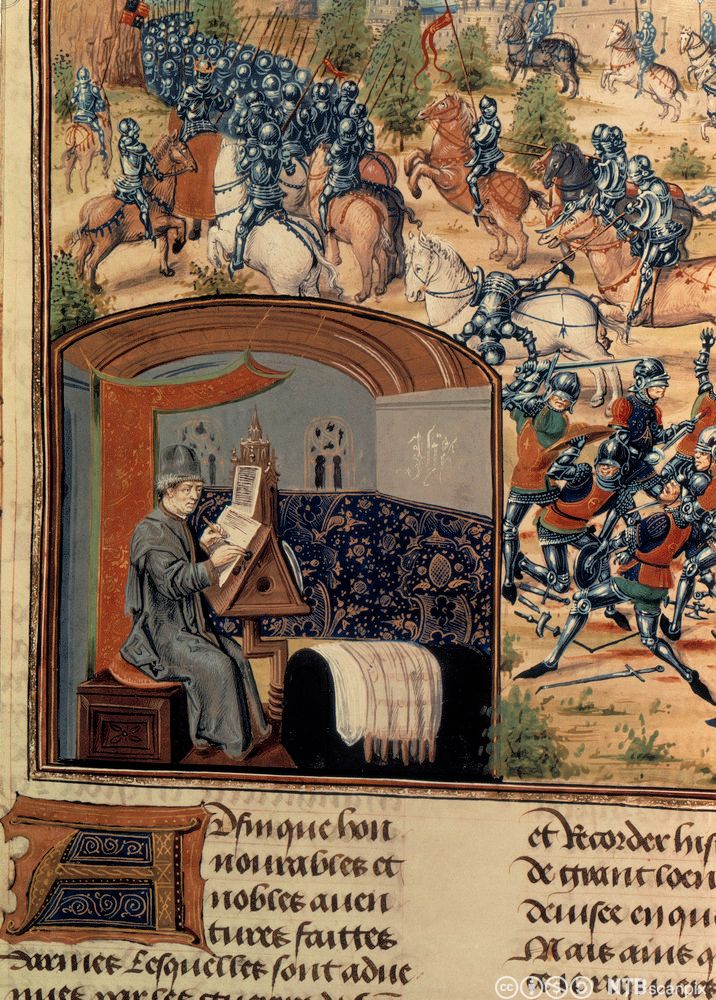 Affin que hon
nourables et
nobles auen
tures faittes
darmes Lesquelles sont adue
nues par les guerres de
et Recorder his
de grant loen
deuisee en que
Mais ains q
NTB scanpix